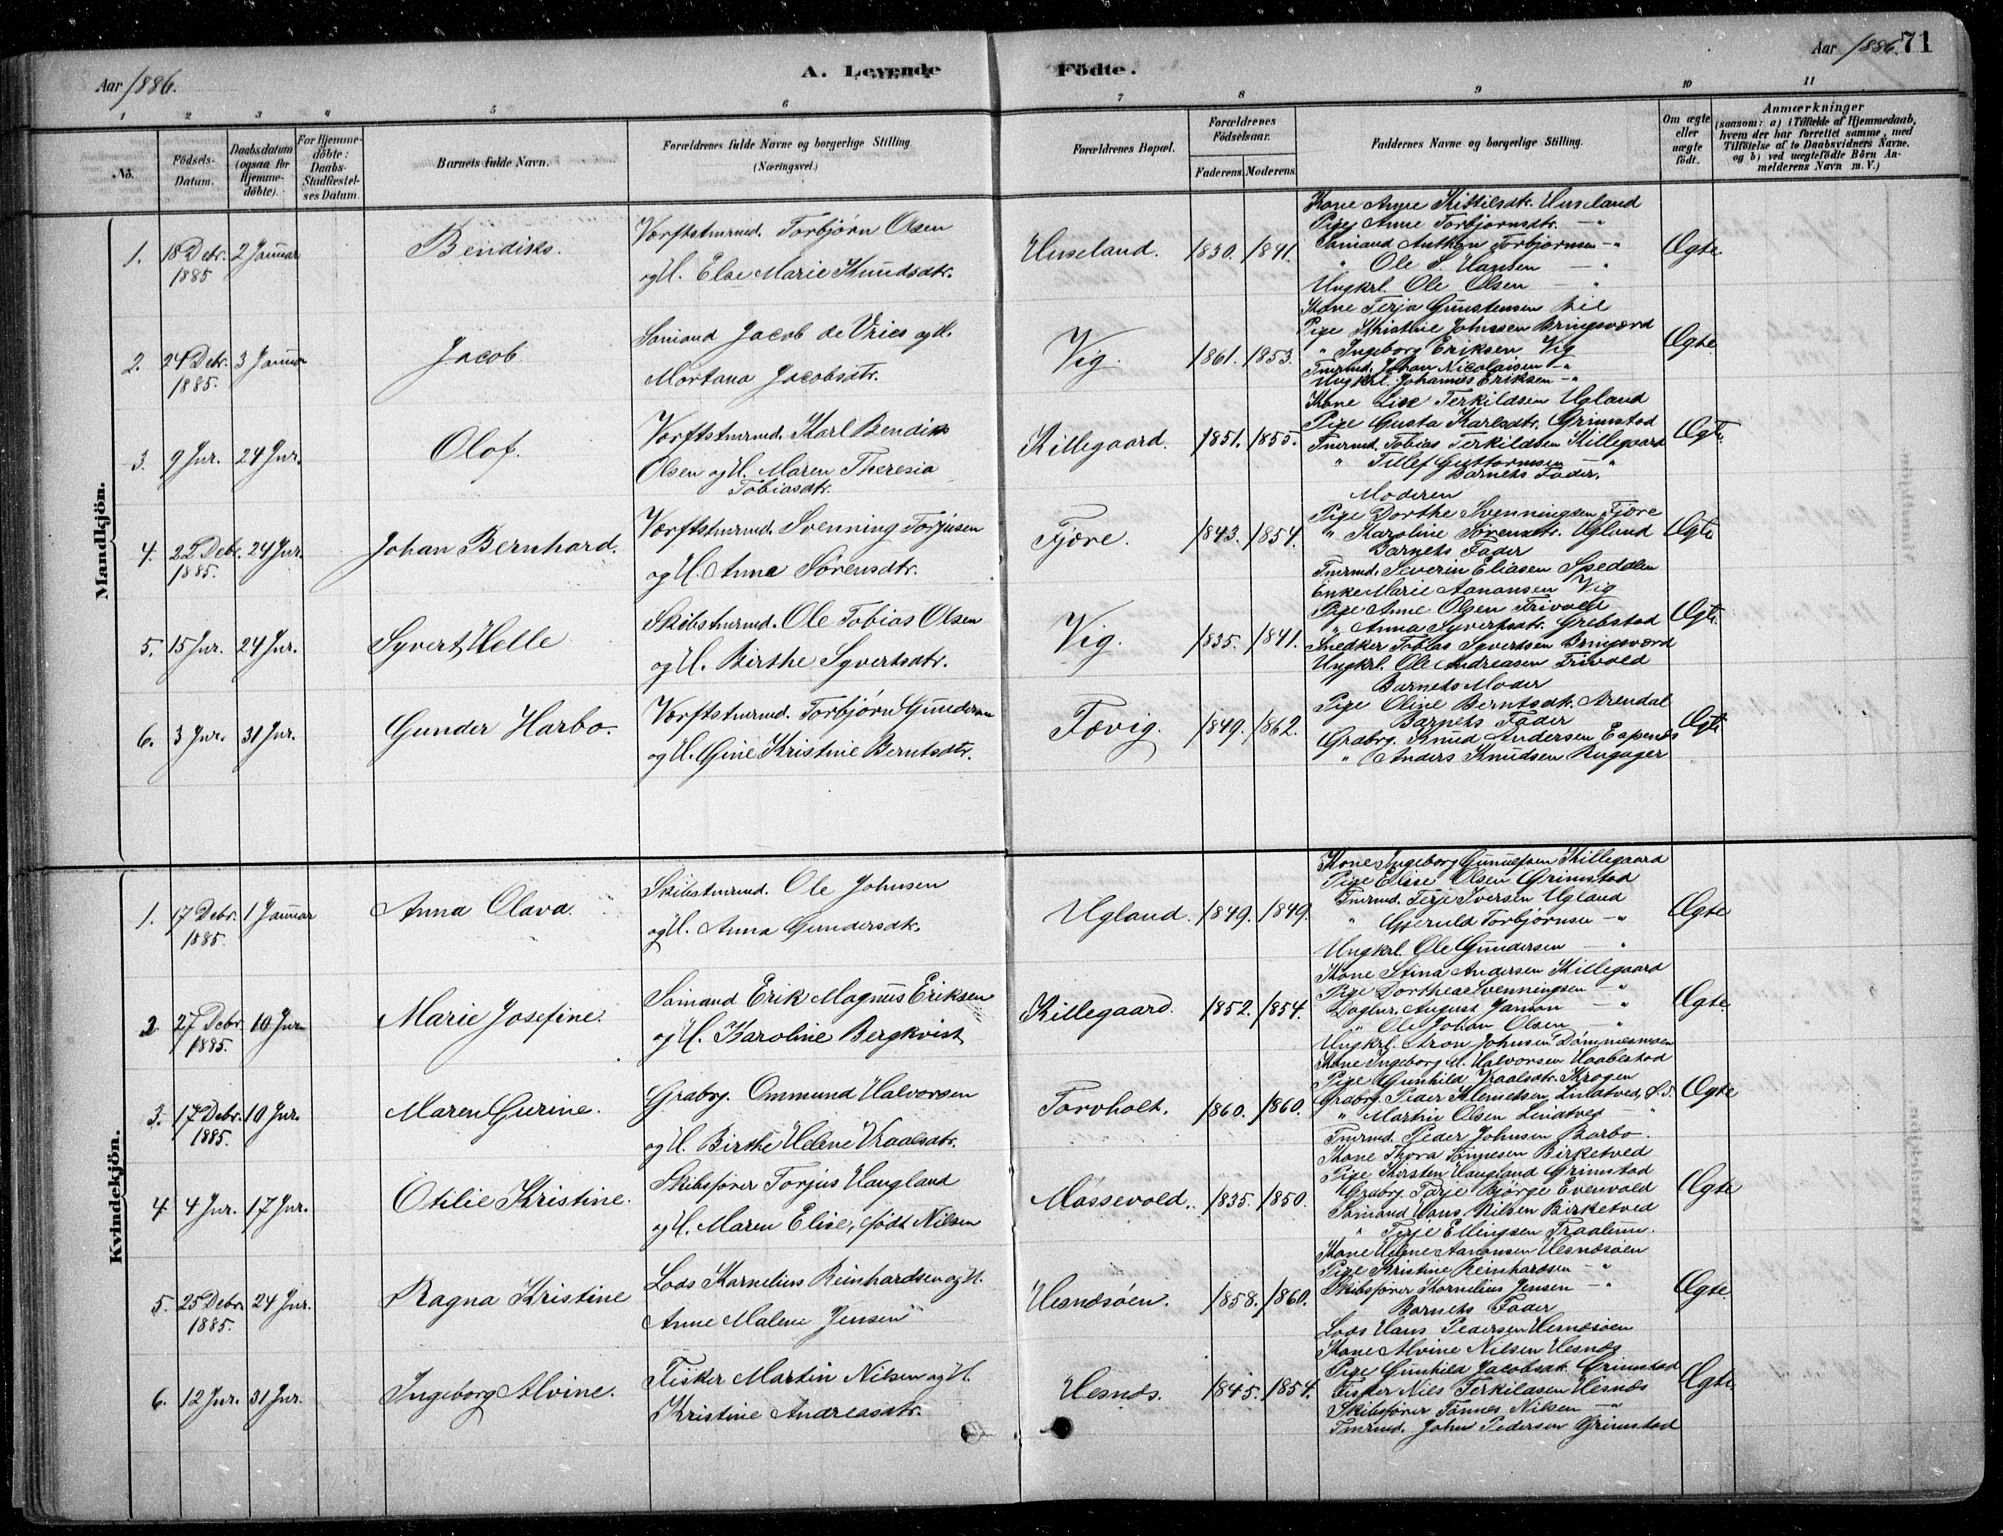 Aar 1886.
A. Levende Födte.
Aar 1886. 71
1 2 3 4 5 6 7 8 9 10 11
No.
Födsels-Datum.
Daabsdatum (ogsaa for Hjemme-döbte).
For Hjemme-döbte: Daabs-Stadfæstel-ses Datum.
Barnets fulde Navn.
Forældrenes fulde Navne og borgerlige Stilling.
(Næringsvei.)
Forældrenes Bopæl.
Forældrenes Födselsaar.
Faderens. Moderens.
Faddernes Navne og borgerlige Stilling.
Om ægte eller uægte födt.
Anmærkninger
(saasom: a) i Tilfælde af Hjemmedaab, hvem der har forrettet samme, med Tilföielse af to Daabsvidners Navne. og b) ved uægtefödte Börn An-melderens Navn m. V.)
Mandkjön.
1. 18 Debr. 1885 2 Januar Bendiks.
Værftstmrmd. Torbjørn Olsen
og H. Else Marie Knudsdtr.
Huseland. 1830. 1841.
Kone Anne Kittilsdtr. Huseland
Pige Anne Torbjørnsdtr. — "
Sømand Anthon Torbjørnsen — "
" Ole S. Hansen — "
Ungkrl. Ole Olsen — "
Ægte.
2. 24 Debr. 1885. 3 Januar Jacob.
Sømand Jacob de Vries og H.
Mortana Jacobsdtr.
Vig. 1861. 1853.
Kone Terja Gunstensen
Pige Kristine Johnsen Bringsværd
" Ingeborg Eriksen Vig
Tmrmd. Johan Nicolaisen — "
Ungkrl. Johannes Eriksen — "
Ægte.
3. 9 Jnr. 24 Jnr. Olof.
Værftstmrmd. Karl Bendiks
Olsen og H. Maren Theresia
Tobiasdtr.
Killegaard. 1851. 1855.
Kone Lise Terkildsen Ugland
Pige Gusta Karlsdtr. Grimstad
Tmrmd. Tobias Terkildsen Killegaard
" Tellef Guttormsen — "
Barnets Fader.
Ægte.
4. 22 Debr. 1885. 24 Jnr. Johan Bernhard.
Værftstmrmd. Svenning Torjusen
og H. Anna Sørensdtr.
Fjære. 1843. 1854.
Moderen
Pige Dorthe Svenningsen Fjære
" Karoline Sørensdtr. Ugland
Barnets Fader
Tmrmd. Severin Eliasen Speddlen
Ægte
5. 15 Jnr. 24 Jnr. Syvert Helle
Skibstmrmd. Ole Tobias Olsen
og H. Birthe Syvertsdtr.
Vig. 1835. 1841.
Enke Marie Aanonsen Vig
Pige Anne Olsen Frivold
" Anna Syvertsdtr. Grebstad
Snedker Tobias Syvertsen Bringsværd
Ungkrl. Ole Andreasen Frivold
Ægte.
6. 3 Jnr. 31 Jnr. Gunder Harbo.
Værftstmrmd. Torbjørn Gundersen
og H. Gine Kristine Berntsdtr.
Fævig. 1849. 1862.
Barnets Moder
Pige Oline Berntsdtr. Arendal
Barnets Fader
Graabrg. Knud Andersen Espenæs
" Anders Knudsen Rugager
Ægte
Kvindekjön.
1. 17 Debr. 1885. 1 Januar Anna Olava.
Skibstmrmd. Ole Johnsen
og H. Anna Gundersdtr.
Ugland. 1849. 1849.
Kone Ingeborg Gunulfsen Killegaard
Pige Elise Olsen Grimstad
Tmrmd. Terje Iversen Ugland
" Gjeruld Torbjørnsen — "
Ungkrl. Ole Gundersen — "
Ægte
2 27 Debr. 1885. 10 Jnr Marie Josefine.
Sømand Erik Magnus Eriksen
og H. Karoline Bergkvist
Killegaard. 1852. 1854.
Kone Stina Andersen Killegaard
Pige Dorthea Svenningsen — "
Daglnr. August Janson — "
" Ole Johan Olsen — "
Ungkrl. Aron Johnsen Dømmesmoen
Ægte.
3. 17 Debr. 1885. 10 Jnr. Maren Gurine.
Graabrg. Ommund Halvorsen
og H. Birthe Helene Vraalsdtr.
Torvholt. 1860. 1860.
Kone Ingeborg M. Halvorsen Haabestad
Pige Gunhild Vraalsdtr. Krogen
Graabrg. Peder Klemetsen
" Martin Olsen Lindtved — "
Tmrmd. Peder Johnsen Barbo.
Ægte
4. 4 Jnr. 17 Jnr. Otilie Kristine.
Skibsfører Torjus Haugland
og H. Maren Elise, født Nilsen
Møssevold. 1835. 1850.
Kone Thora Tønnesen Birketved
Pige Kirsten Haugland Grimstad
Graabrg. Terje Bjørge Evenvold
Sømand Hans Nilsen Birketved
" Terje Ellingsen Traalum.
Ægte
5. 25 Debr. 1885. 24 Jnr. Ragna Kristine
Lods Kornelius Reinhardsen og H.
Anne Malene Jensen
Hesnæsøen. 1858. 1860.
Kone Helene Aanonsen Hesnæsøen
Pige Kristine Reinhardsen — "
Skibsfører Kornelius Jensen — "
Barnets Fader
Lods Hans Pedersen Hesnæsøen
Ægte.
6. 12 Jnr. 31 Jnr. Ingeborg Alvine.
Fisker Martin Nilsen og H.
Kristine Andreasdtr.
Hesnæs. 1845. 1854.
Kone Alvine Nilsen Hesnæs
Pige Gunhild Jacobsdtr. Grimstad
Fisker Niels Terkildsen Hesnæs
Skibsfører Tønnes Nilsen — "
Tmrmd. John Pedersen Grimstad
Ægte